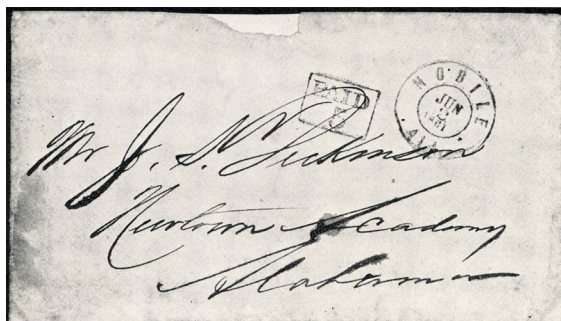 PAID
5
MOBILE
JUN
2
1861
ALA
Mr J. S. Dickinson
Newtown Academy
Alabama